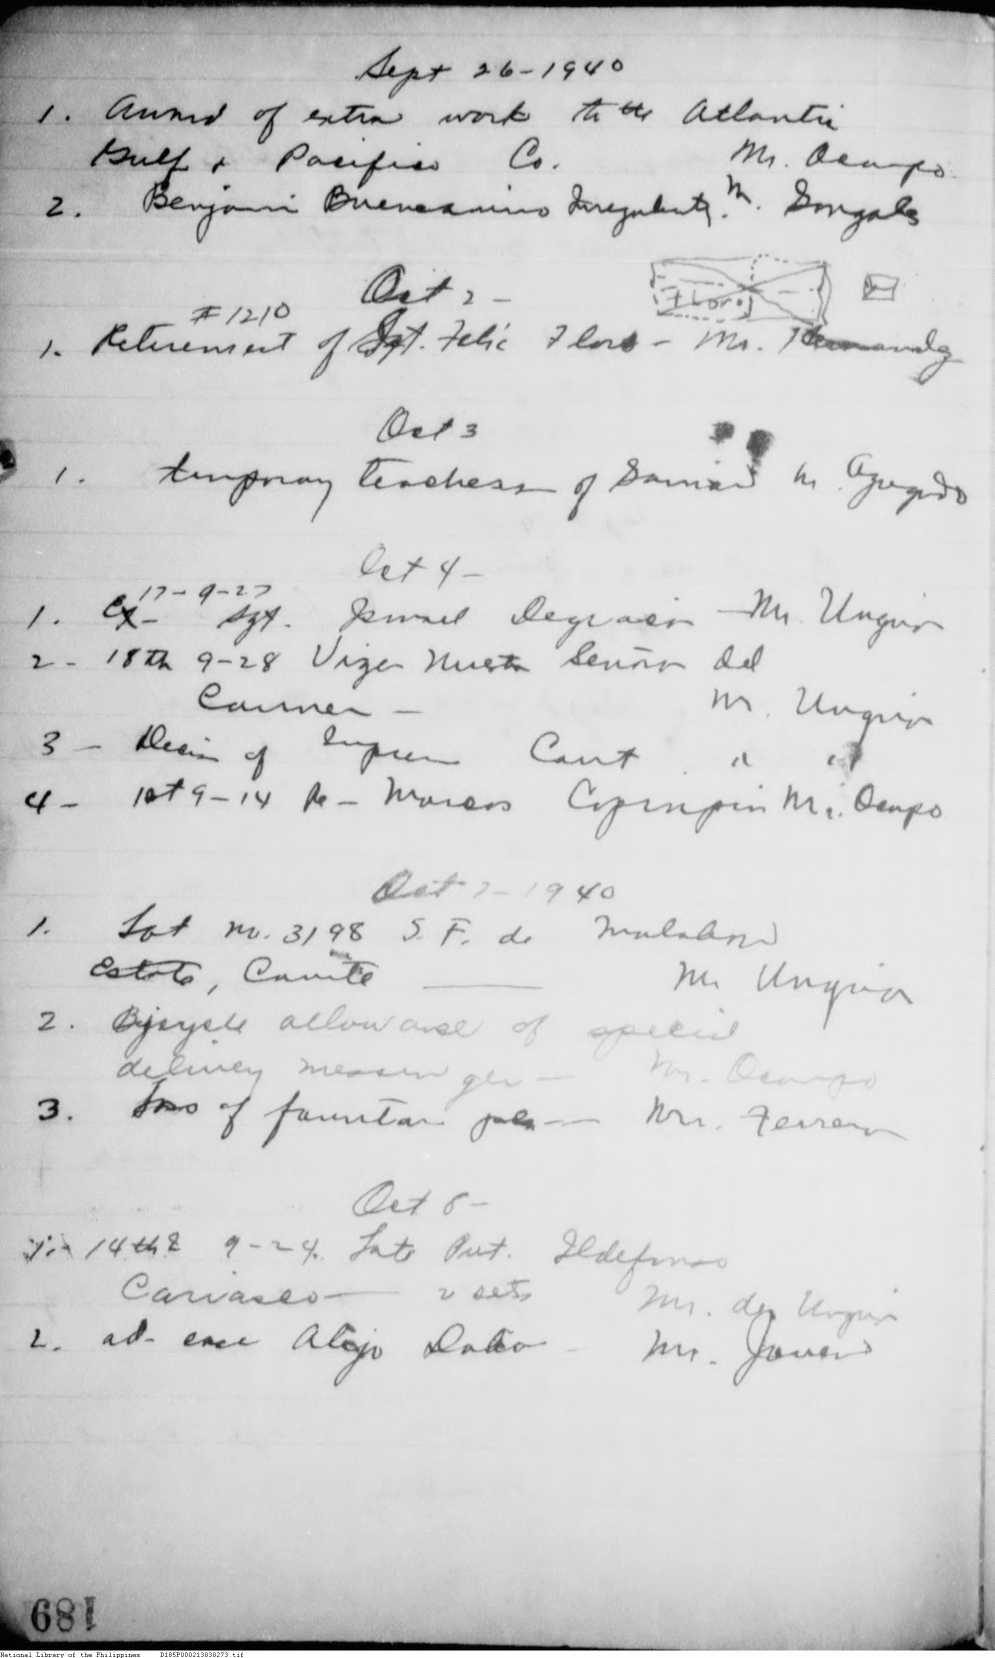 Sept 26-1940
1. Award of extra work to the Atlantic
Gulf & Pacific Co. Mr. Ocampo
2. Benjamin Mr. Gonzales
Oct 2-
#1210
1. Retirement of Sgt. Felix Flores - Mr. Hernandez
Oct 3
1. temporary teachers of Mr.
Oct 4-
17-9-27
1. Ex- Sgt. Ismael Degracia - Mr. Ungria
2- 18th 9-28 Señora del
Carmen - Mr. Ungria
3- of Supreme Court " "
4- 1st 9-14 Re- Marcos Mr. Ocampo
Oct 7-1940
1. Lot No. 3198 S. F. de Malabon
Estate, Cavite Mr Ungria
2. Bicycle allowance of special
delivery messenger - Mr. Ocampo
3. Loss of fountain pen - Mr. Ferrer
Oct 8-
1. 14th & 9-24. Late Put. Ildefonso
Cariaseo - 2 sets Mr. de Ungria
2. ad- case Alejo - Mr. Javier
681
National Library of the Philippines D185P000213838273.tif